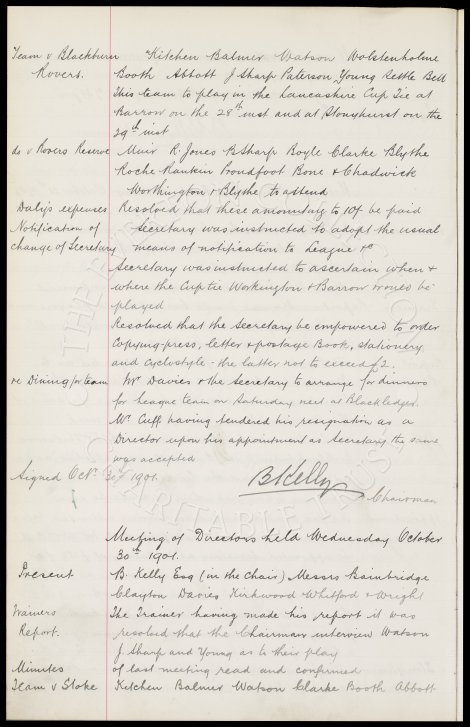 Team v Blackburn Kitchen Balmer Watson Wolstenholme
Rovers. Booth Abbott J Sharp Paterson, Young Settle Bell
This team to play in the Lancashire Cup Tie at
Barrow on the 28th inst and at Stonyhurst on the
29th inst
do v Rovers Reserve Muir R. Jones B Sharp Boyle Clarke Blythe
Roche Rankin Proudfoot Bone & Chadwick
Worthington & Blythe to attend
Daly's expenses Resolved that these amounting to 10/ be paid
Notification of Secretary was instructed to adopt the usual
change of Secretary means of notification to League &c
Secretary was instructed to ascertain when &
where the Cup tie Workington & Barrow would be
played
Resolved that the Secretary be empowered to order
Copying-press, letter & postage Book, stationery
and cyclostyle - the latter not to exceed £2.
re Dining for team Mr Davies & the Secretary to arrange for dinners
for League team on Saturday next at Blackledges.
Mr Cuff having tendered his resignation as a
Director upon his appointment as Secretary the same
was accepted
Signed Octr 30/ 1901. B Kelly
Chairman
Meeting of Directors held Wednesday October
30th 1901.
Present B. Kelly Esq (in the chair) Messrs Bainbridge
Clayton Davies Kirkwood Whitford & Wright
Trainers The Trainer having made his report it was
Report. resolved that the Chairman interview Watson
J. Sharp and Young as to their play
Minutes of last meeting read and confirmed
Team v Stoke Kitchen Balmer Watson Clarke Booth Abbott